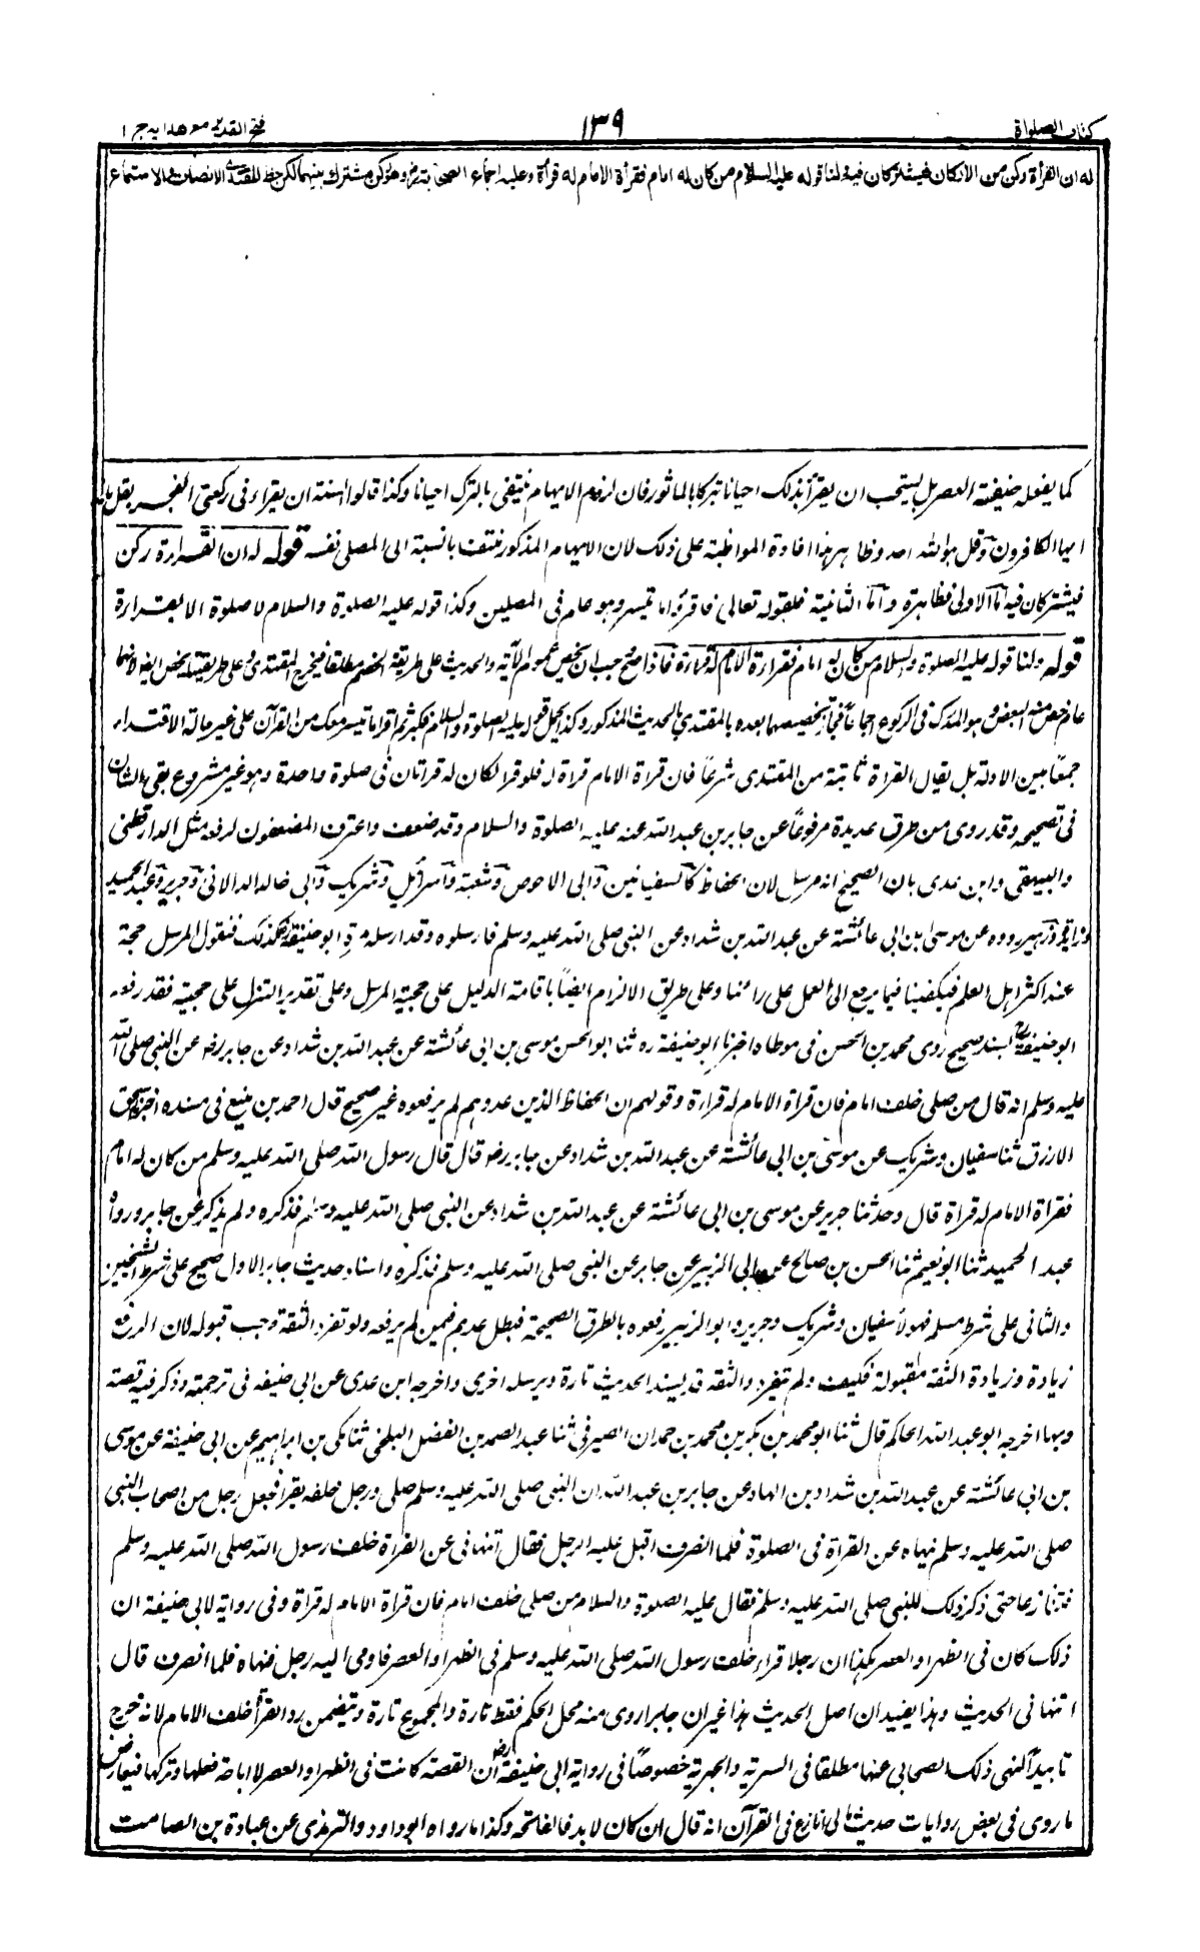 كتاب الصلواة
١٣٩
فتح القدير مع هدايه ج ١
له ان القرأة ركن من الاركان فيشتركان فيه ولنا قوله عليه السلام من كان له امام فقرأة الامام له قرأة وعليه اجماع الصحابة رض وهو ركن مشترك بينهما لكن حظ المقتدى الانصات والاستماع
كما يفعله حنفية العصر بل يستحب ان يقرأ بذلك احيانا تبركا بالماثور فان لزوم الايهام ينتفى بالترك احيانا وكذا قالوا السنة ان يقراء فى ركعتى الفجر بقل يا
ايها الكافرون وقل هو الله احد وظاهر هذا افادة المواظبة على ذلك لان الايهام المذكور منتف بالنسبة الى المصلى نفسه قوله له ان القراءة ركن
فيشتركان فيه اما الاولى فظاهرة واما الثانية فلقوله تعالى فاقرؤا ما تيسر وهو عام فى المصلين وكذا قوله عليه الصلوة والسلام لا صلوة الا بقراءة
قوله ولنا قوله عليه الصلوة والسلام من كان له امام فقراءة الامام له قراءة فاذا صح وجب ان يخص عموم الآية والحديث على طريقة الخصم مطلقا فيخرج المقتدى وعلى طريقتنا يخص ايضا لانهما
عام خص منه البعض وهو المدرك فى الركوع اجماعاً فجاز تخصيصهما بعده بالمقتدي بالحديث المذكور وكذا يحمل قوله عليه الصلوة والسلام فكبر ثم اقرأ ما تيسر معك من القرآن على غير حالة الاقتداء
جمعاً بين الادلة بل يقال القراة ثابتة من المقتدى شرعاً فان قراة الامام قراة له فلو قرأ لكان له قراتان فى صلوة واحدة وهو غير مشروع بقى الشان
فى تصحيحه وقد روى من طرق عديدة مرفوعاً عن جابر بن عبد الله عنه عليه الصلوة والسلام وقد ضعف واعترف المضعفون لرفعه مثل الدارقطنى
والبيهقى وابن عدى بان الصحيح انه مرسل لان الحفاظ كالسفيانين وابى الاحوص وشعبة واسرائيل وشريك وابى خالد الدالانى وجرير وعبد الحميد
وزائدة وزهير رووه عن موسى ابن ابى عائشة عن عبد الله بن شداد عن النبى صلى الله عليه وسلم فارسلوه وقد ارسله مرة ابو حنيفة كذلك فنقول المرسل حجة
عند اكثر اهل العلم فيكفينا فيما يرجع الى العمل على رائنا وعلى طريق الالزام ايضاً باقامة الدليل على حجية المرسل وعلى تقدير التنزل على حجيته فقد رفعه
ابو حنيفة بسند صحيح روى محمد بن الحسن فى موطاه اخبرنا ابو حنيفة ره ثنا ابو الحسن موسى بن ابى عائشة عن عبد الله بن شداد عن جابر رض عن النبى صلى الله
عليه وسلم انه قال من صلى خلف امام فان قراة الامام له قراءة وقولهم ان الحفاظ الذين عدوهم لم يرفعوه غير صحيح قال احمد بن منيع فى مسنده اخبرنا اسحق
الازرق ثنا سفيان وشريك عن موسى بن ابى عائشة عن عبد الله بن شداد عن جابر رض قال قال رسول الله صلى الله عليه وسلم من كان له امام
فقراة الامام له قراة قال وحدثنا جرير عن موسى بن ابى عائشة عن عبد الله بن شداد عن النبى صلى الله عليه وسلم فذكره ولم يذكر عن جابر ورواه
عبد الحميد ثنا ابو نعيم ثنا الحسن بن صالح عن ابى الزبير عن جابر عن النبى صلى الله عليه وسلم فذكره واسناد حديث جابر الاول صحيح على شرط الشيخين
والثانى على شرط مسلم فهولاء سفيان وشريك وجرير وابو الزبير رفعوه بالطرق الصحيحة فبطل عدهم فيمن لم يرفعه ولو تفرد الثقة وجب قبوله لان الرفع
زيادة وزيادة الثقة مقبولة فكيف ولم ينفرد والثقة قد يسند الحديث تارة ويرسله اخرى واخرجه ابن عدى عن ابى حنيفه فى ترجمته وذكر فيه قصته
وبها اخرجه ابو عبد الله الحاكم قال ثنا ابو محمد بن بكر بن محمد بن حمدان الصيرفى ثنا عبد الصمد بن الفضل البلخى ثنا مكى بن ابراهيم عن ابى حنيفة عن موسى
بن ابى عائشة عن عبد الله بن شداد بن الهاد عن جابر بن عبد الله ان النبى صلى الله عليه وسلم صلى ورجل خلفه يقرأ فجعل رجل من اصحاب النبى
صلى الله عليه وسلم ينهاه عن القراة فى الصلوة فلما انصرف اقبل عليه الرجل فقال أتنهانى عن القراة خلف رسول الله صلى الله عليه وسلم
فتنازعا حتى ذكر ذلك للنبى صلى الله عليه وسلم فقال عليه الصلوة والسلام من صلى خلف امام فان قراة الامام له قراة وفى رواية لابى حنيفة ان
ذلك كان فى الظهر او العصر هكذا ان رجلا قراء خلف رسول الله صلى الله عليه وسلم فى الظهر او العصر فاومى اليه رجل فنهاه فلما انصرف قال
اتنهانى الحديث وهذا يفيد ان اصل الحديث هذا غير ان جابرا روى منه محل الحكم فقط تارة والمجموع تارة ويتضمن رد القرأ خلف الامام لانه خرج
تاييداً لنهى ذلك الصحابى عنها مطلقا فى السرية والجهرية خصوصاً فى رواية ابى حنيفة رض ان القصة كانت فى الظهر او العصر لا اباحة فعلها وتركها فيعارض
ما روى فى بعض روايات حديث مالى انازع فى القرآن انه قال ان كان لا بد فالفاتحة وكذا ما رواه ابو داود والترمذى عن عبادة بن الصامت